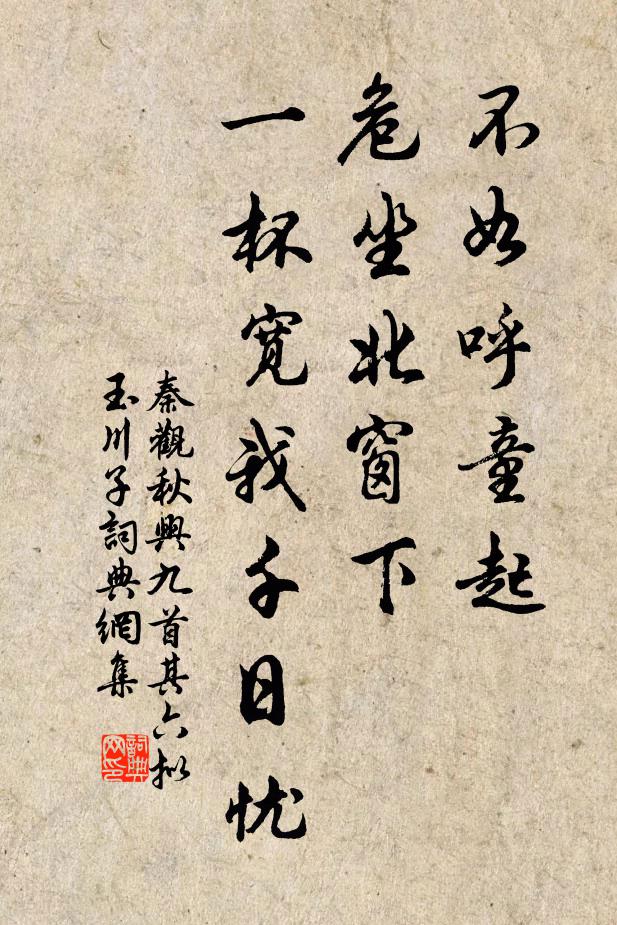 不如呼童起
危坐北窗下
一杯寬我千日忧
秦觀秋興九首其六拟
玉川子詞典網集
詞典网印